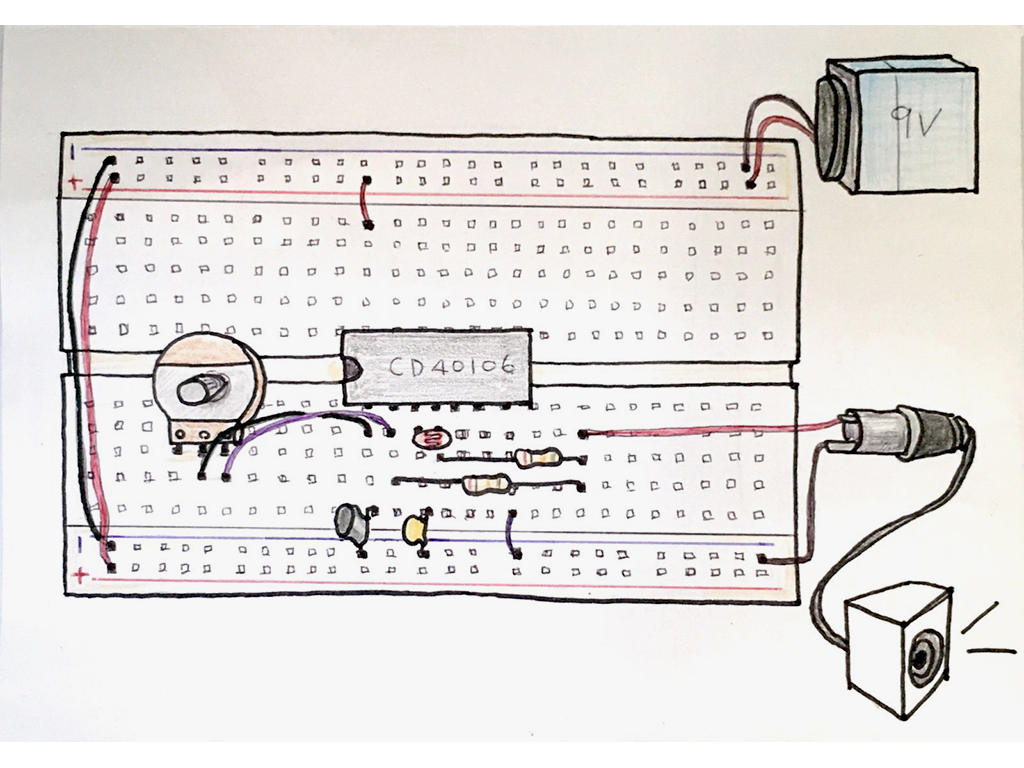 9V
-
+
CD40106
-
+